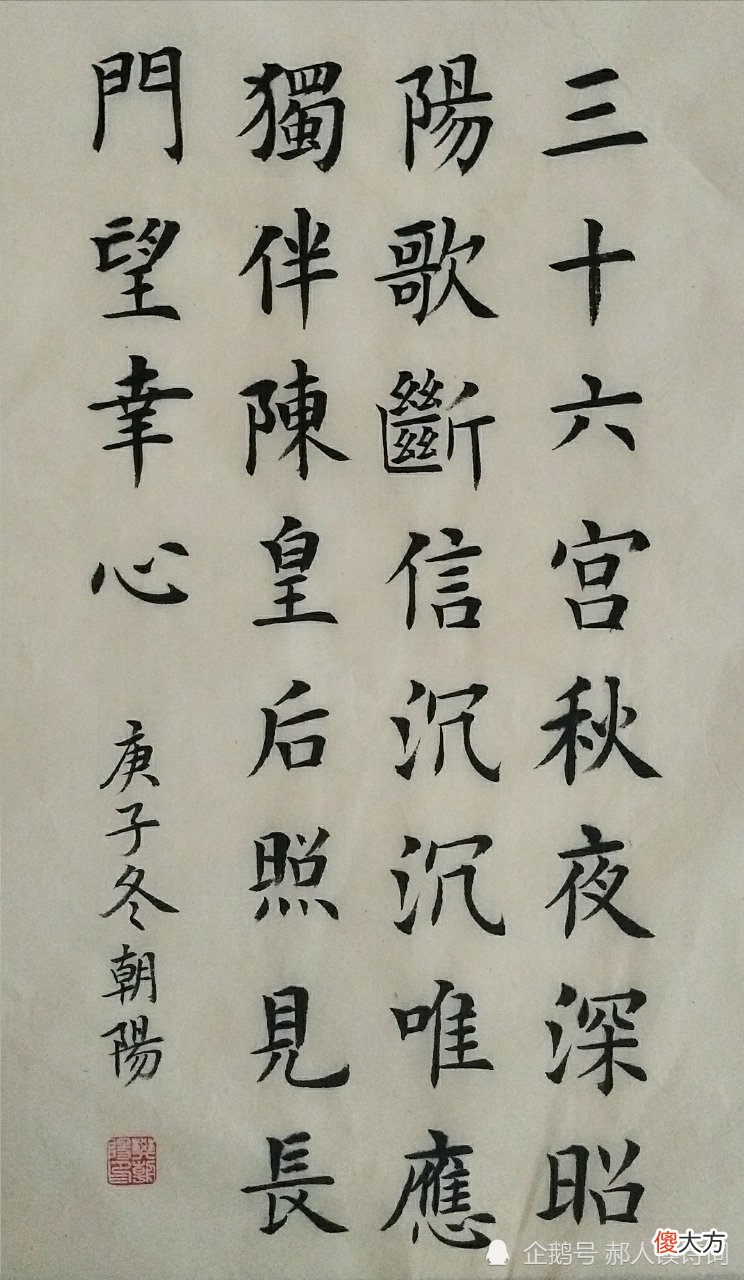 三十六宫秋夜深昭
陽歌斷信沉沉唯應
獨伴陳皇后照見長
門望幸心
庚子冬朝陽
企鹅号 郝人读诗词
傻大方